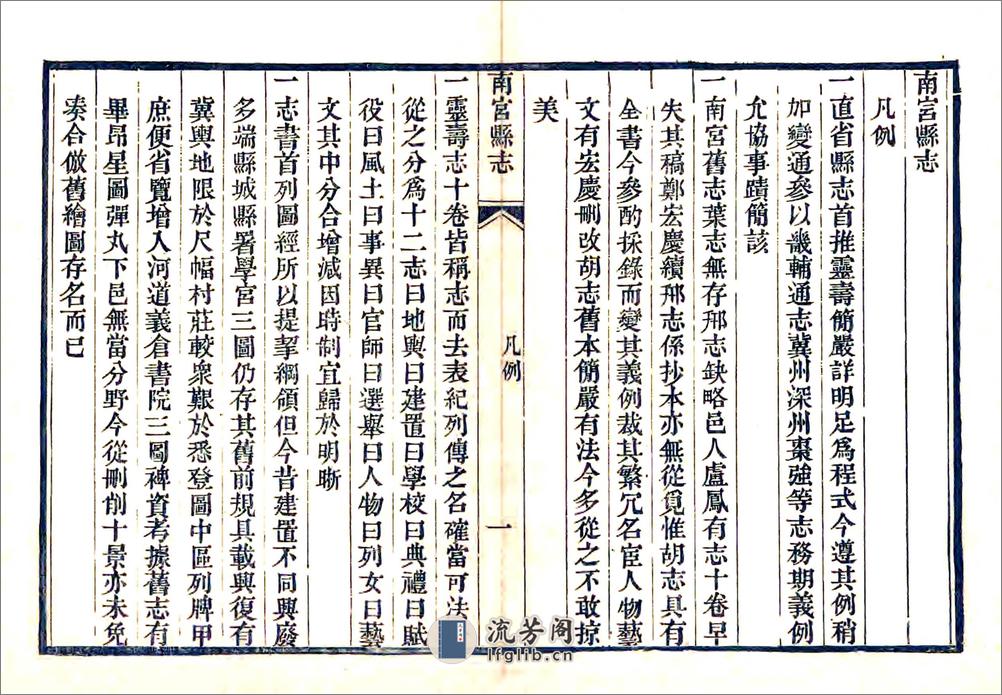 南宮縣志
凡例
一直省縣志首推靈壽簡嚴詳明足爲程式今遵其例稍
加變通參以畿輔通志冀州深州棗強等志務期義例
允協事蹟簡該
一南宮舊志葉志無存邢志缺略邑人盧鳳有志十卷早
失其稿鄭宏慶續邢志係抄本亦無從覓惟胡志具有
全書今參酌採錄而變其義例裁其繁冗名宦人物藝
文有宏慶刪改胡志舊本簡嚴有法今多從之不敢掠
美
南宮縣志
凡例
一
一靈壽志十卷皆稱志而去表紀列傳之名確當可法今
從之分爲十二志曰地輿曰建置曰學校曰典禮曰賦
役曰風土曰事異曰官師曰選舉曰人物曰列女曰藝
文其中分合增減因時制宜歸於明晰
一志書首列圖經所以提挈綱領但今昔建置不同興廢
多端縣城縣署學宮三圖仍存其舊前規具載興復有
冀輿地限於尺幅村莊較衆艱於悉登圖中區列牌甲
庶便省覽增入河道義倉書院三圖裨資考據舊志有
畢昴星圖彈丸下邑無當分野今從刪削十景亦未免
湊合倣舊繪圖存名而已
流芳阁
lfglib.cn